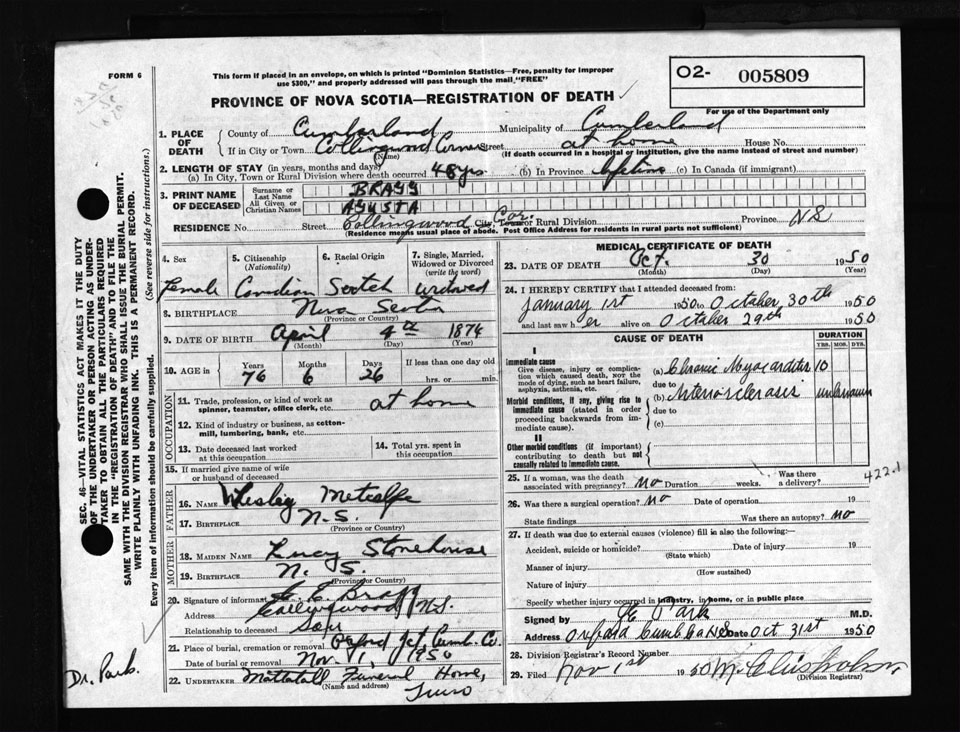 FORM 6
This form if placed in an envelope, on which is printed "Dominion Statistics—Free, penalty for improper
use $300," and properly addressed will pass through the mail "FREE"
O2- 005809
For use of the Department only
PROVINCE OF NOVA SCOTIA—REGISTRATION OF DEATH
1. PLACE OF DEATH
County of Cumberland Municipality of Cumberland
If in City or Town Collingwood Corner Street at home House No.
(Name) (If death occurred in a hospital or institution, give the name instead of street and number)
2. LENGTH OF STAY (in years, months and days)
(a) In City, Town or Rural Division where death occurred 48 yrs (b) In Province lifetime (c) In Canada (if immigrant)
3. PRINT NAME OF DECEASED
Surname or Last Name BRAGG
All Given or Christian Names AGUSTA
RESIDENCE No. Street Collingwood Cor. City, Town or Rural Division Province NS
(Residence means usual place of abode. Post Office Address for residents in rural parts not sufficient)
4. Sex Female
5. Citizenship (Nationality) Canadian
6. Racial Origin Scotch
7. Single, Married, Widowed or Divorced (write the word) widowed
8. BIRTHPLACE Nova Scotia
(Province or Country)
9. DATE OF BIRTH April 4th 1874
(Month) (Day) (Year)
10. AGE in Years 76 Months 6 Days 26 If less than one day old
hrs. or min.
OCCUPATION
11. Trade, profession, or kind of work as spinner, teamster, office clerk, etc. at home
12. Kind of industry or business, as cotton-mill, lumbering, bank, etc.
13. Date deceased last worked at this occupation
14. Total yrs. spent in this occupation
15. If married give name of wife or husband of deceased
FATHER
16. NAME Whesley Metcalfe
17. BIRTHPLACE N.S.
(Province or Country)
MOTHER
18. MAIDEN NAME Lucy Stonehouse
19. BIRTHPLACE N. S.
(Province or Country)
20. Signature of informant C. E. Bragg
Address Collingwood, N.S.
Relationship to deceased son
21. Place of burial, cremation or removal Oxford Jct. Cumb. Co.
Date of burial or removal Nov. 1, 1950
22. UNDERTAKER Mattatall Funeral Home,
(Name and address) Truro
MEDICAL CERTIFICATE OF DEATH
23. DATE OF DEATH Oct. 30 1950
(Month) (Day) (Year)
24. I HEREBY CERTIFY that I attended deceased from:
January 1st 1950 to October, 30th 1950
and last saw her alive on October 29th 1950
CAUSE OF DEATH
DURATION
YRS. MOS. DYS.
I
Immediate cause
Give disease, injury or complication which caused death, not the mode of dying, such as heart failure, asphyxia, asthenia, etc.
(a) Chronic Myocarditis 10
due to
Morbid conditions, if any, giving rise to immediate cause (stated in order proceeding backwards from immediate cause).
(b) Arteriosclerosis unknown
due to
(c)
II
Other morbid conditions (if important) contributing to death but not causally related to immediate cause.
422.1
25. If a woman, was the death associated with pregnancy? no Duration weeks. Was there a delivery?
26. Was there a surgical operation? no Date of operation 19
State findings Was there an autopsy? no
27. If death was due to external causes (violence) fill in also the following:—
Accident, suicide or homicide? Date of injury 19
(State which)
Manner of injury
(How sustained)
Nature of injury
Specify whether injury occurred in industry, in home, or in public place
Signed by Park M.D.
Address Oxford Cumb Co NS Date Oct 31st 1950
28. Division Registrar's Record Number
29. Filed Nov 1st 1950 M. Chisholm
(Division Registrar)
SEC. 46—VITAL STATISTICS ACT MAKES IT THE DUTY
OF THE UNDERTAKER OR PERSON ACTING AS UNDERTAKER
TO OBTAIN ALL THE PARTICULARS REQUIRED
IN THE "REGISTRATION OF DEATH" AND TO FILE THE
SAME WITH THE DIVISION REGISTRAR WHO SHALL ISSUE THE BURIAL PERMIT.
WRITE PLAINLY WITH UNFADING INK. THIS IS A PERMANENT RECORD.
Every item of information should be carefully supplied. (See reverse side for instructions.)
Dr. Park.